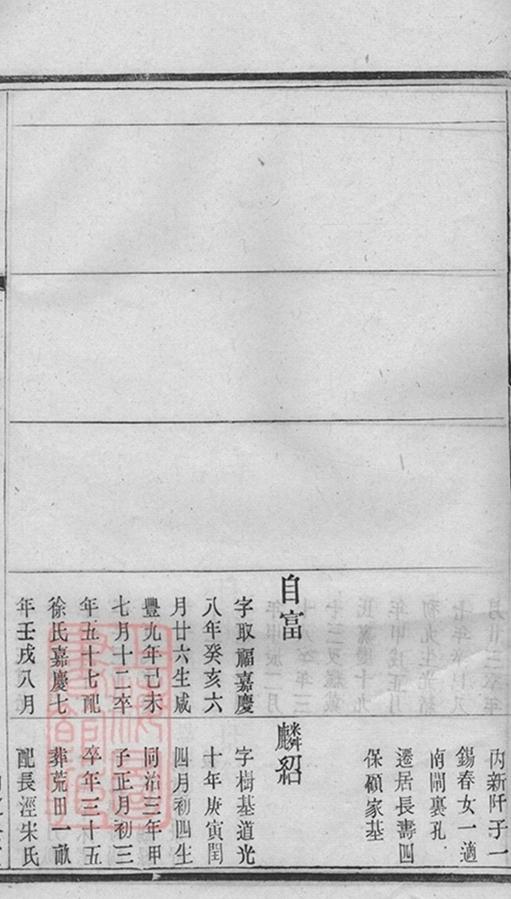 自富
字取福嘉慶
八年癸亥六
月廿六生咸
豐九年己未
七月十二卒
年五十七配
徐氏嘉慶七
年壬戌八月
丙新阡子一
錫春女一適
南閘裏孔
遷居長壽四
保顧家基
麟紹
字樹基道光
十年庚寅閏
四月初四生
同治三年甲
子正月初三
卒年三十五
葬荒田一畝
配長涇宋氏